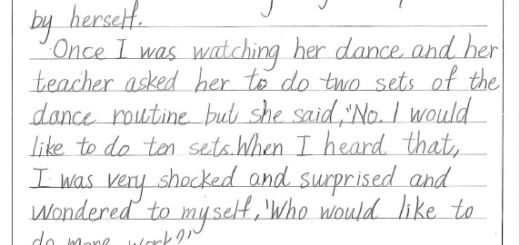 by herself.
Once I was watching her dance and her
teacher asked her to do two sets of the
dance routine but she said,"No. I would
like to do ten sets.When I heard that,
I was very shocked and surprised and
wondered to myself,'Who would like to
do more work?'